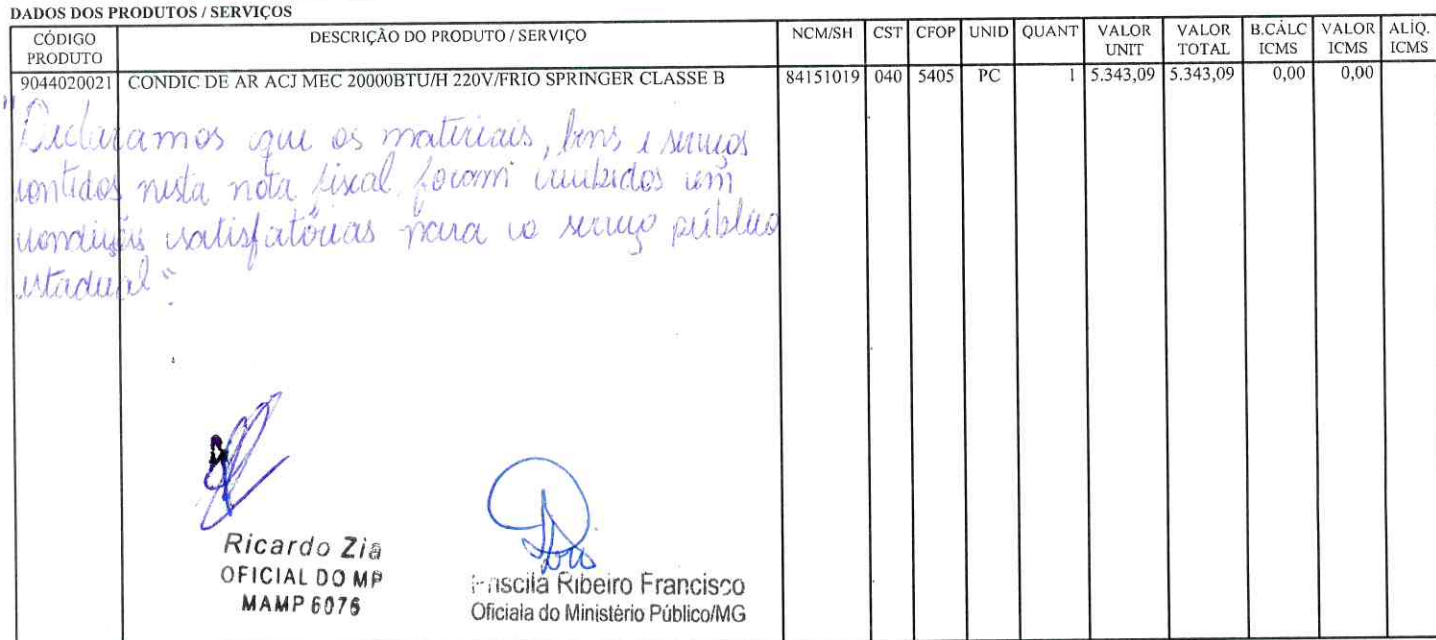 DADOS DOS PRODUTOS / SERVIÇOS
CÓDIGO PRODUTO DESCRIÇÃO DO PRODUTO / SERVIÇO NCM/SH CST CFOP UNID QUANT VALOR UNIT VALOR TOTAL B.CÁLC ICMS VALOR ICMS ALÍQ. ICMS
9044020021 CONDIC DE AR ACJ MEC 20000BTU/H 220V/FRIO SPRINGER CLASSE B 84151019 040 5405 PC 1 5.343,09 5.343,09 0,00 0,00
"Declaramos que os materiais, bens e serviços
contidos nesta nota fiscal foram recebidos em
condições satisfatórias para o serviço público
estadual"
Ricardo Zia
OFICIAL DO MP
MAMP 6076
Priscila Ribeiro Francisco
Oficiala do Ministério Público/MG